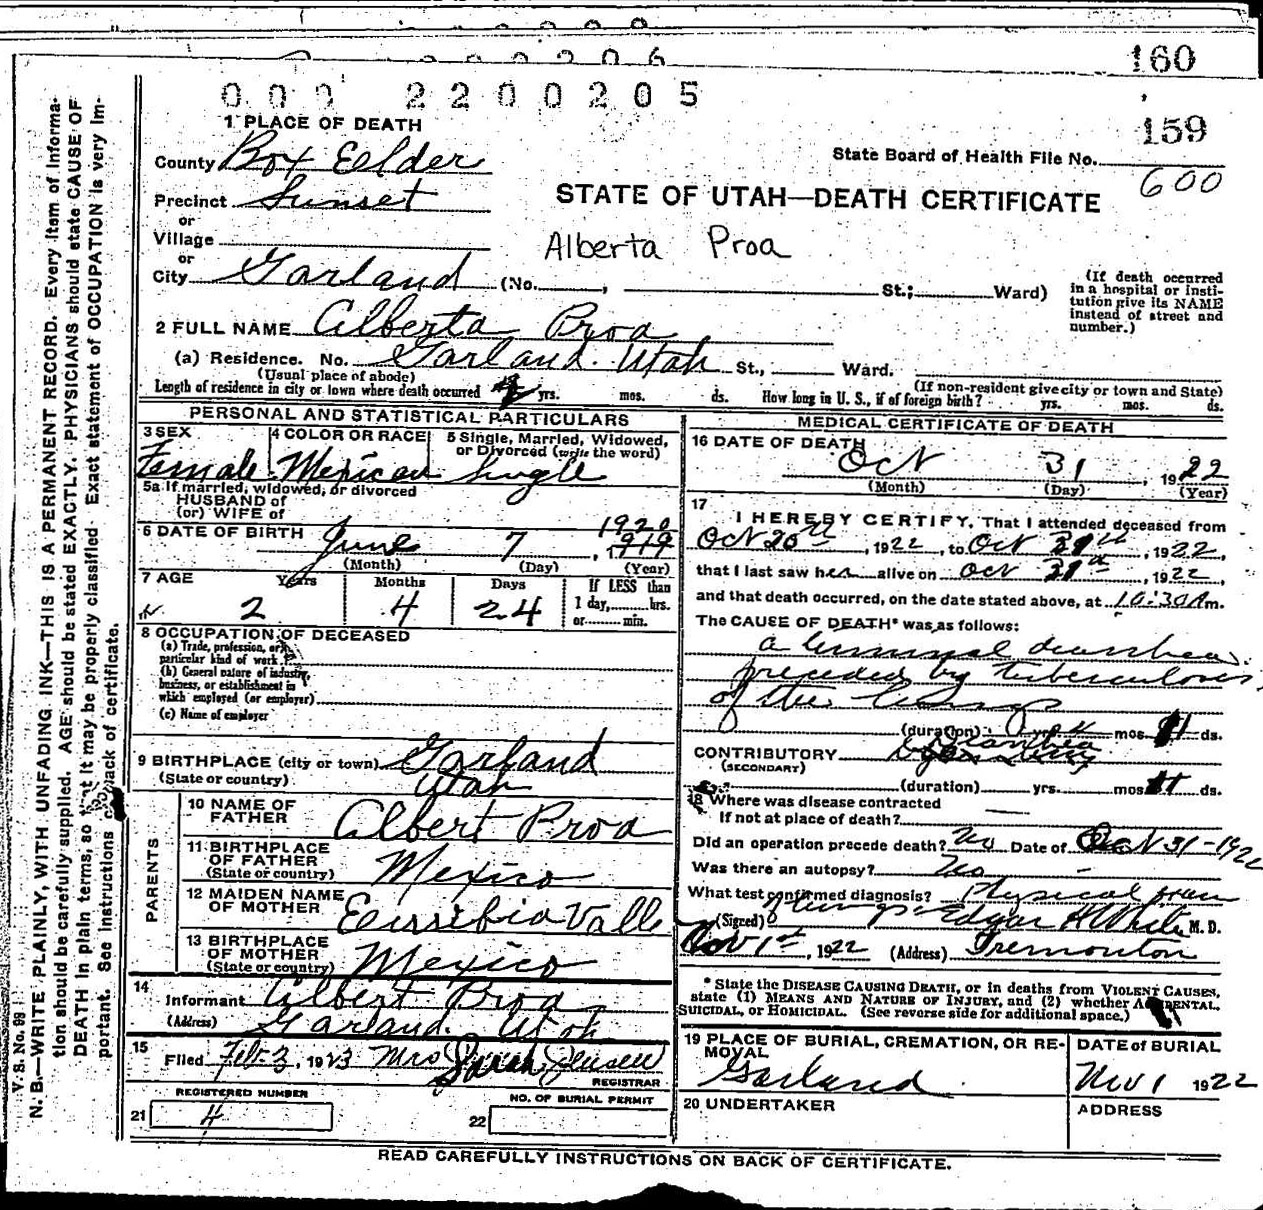 160
000 2200205
159
1 PLACE OF DEATH
County Box Eelder
State Board of Health File No. 600
Precinct Sunset
STATE OF UTAH—DEATH CERTIFICATE
or
Village
Alberta Proa
or
City Garland (No. , St.; Ward)
(If death occurred in a hospital or institution give its NAME instead of street and number.)
2 FULL NAME Alberta Proa
(a) Residence. No. Garland. Utah St., Ward.
(Usual place of abode)
(If non-resident give city or town and State)
Length of residence in city or town where death occurred yrs. mos. ds. How long in U. S., if of foreign birth? yrs. mos. ds.
PERSONAL AND STATISTICAL PARTICULARS
3 SEX 4 COLOR OR RACE 5 Single, Married, Widowed, or Divorced (write the word)
Female Mexican Single
5a If married, widowed, or divorced
HUSBAND of
(or) WIFE of
6 DATE OF BIRTH June 7, 1920 1919
(Month) (Day) (Year)
7 AGE Years Months Days If LESS than
2 4 24 1 day, hrs.
or min.
8 OCCUPATION OF DECEASED
(a) Trade, profession, or
particular kind of work
(b) General nature of industry,
business, or establishment in
which employed (or employer)
(c) Name of employer
9 BIRTHPLACE (city or town) Garland
(State or country) Utah
PARENTS
10 NAME OF FATHER Albert Proa
11 BIRTHPLACE OF FATHER (State or country) Mexico
12 MAIDEN NAME OF MOTHER Eussibia Valle
13 BIRTHPLACE OF MOTHER (State or country) Mexico
14
Informant Albert Proa
(Address) Garland. Utah
15
Filed Feb 3, 1923 Mrs Sarah Jensen
REGISTRAR
REGISTERED NUMBER NO. OF BURIAL PERMIT
21 4 22
MEDICAL CERTIFICATE OF DEATH
16 DATE OF DEATH
Oct 31, 1922
(Month) (Day) (Year)
17
I HEREBY CERTIFY, That I attended deceased from
Oct 20th, 1922, to Oct 31th, 1922,
that I last saw her alive on Oct 31th, 1922,
and that death occurred, on the date stated above, at 10:30 A m.
The CAUSE OF DEATH* was as follows:
a terminal diarrhea
preceded by tuberculosis
of the lungs
(duration) yrs. mos. ds.
CONTRIBUTORY Diarrhea
(SECONDARY)
(duration) yrs. mos. ds.
18 Where was disease contracted
If not at place of death?
Did an operation precede death? No Date of Oct 31-1922
Was there an autopsy? No
What test confirmed diagnosis? Physical exam
(Signed) Edgar H White M. D.
Nov 1st, 1922 (Address) Tremonton
* State the DISEASE CAUSING DEATH, or in deaths from VIOLENT CAUSES,
state (1) MEANS AND NATURE OF INJURY, and (2) whether ACCIDENTAL,
SUICIDAL, or HOMICIDAL. (See reverse side for additional space.)
19 PLACE OF BURIAL, CREMATION, OR REMOVAL DATE of BURIAL
Garland Nov 1 1922
20 UNDERTAKER ADDRESS
READ CAREFULLY INSTRUCTIONS ON BACK OF CERTIFICATE.
V. S. No. 99
N. B.—WRITE PLAINLY, WITH UNFADING INK—THIS IS A PERMANENT RECORD. Every item of informa-
tion should be carefully supplied. AGE should be stated EXACTLY. PHYSICIANS should state CAUSE OF
DEATH in plain terms, so that it may be properly classified. Exact statement of OCCUPATION is very im-
portant. See instructions on back of certificate.